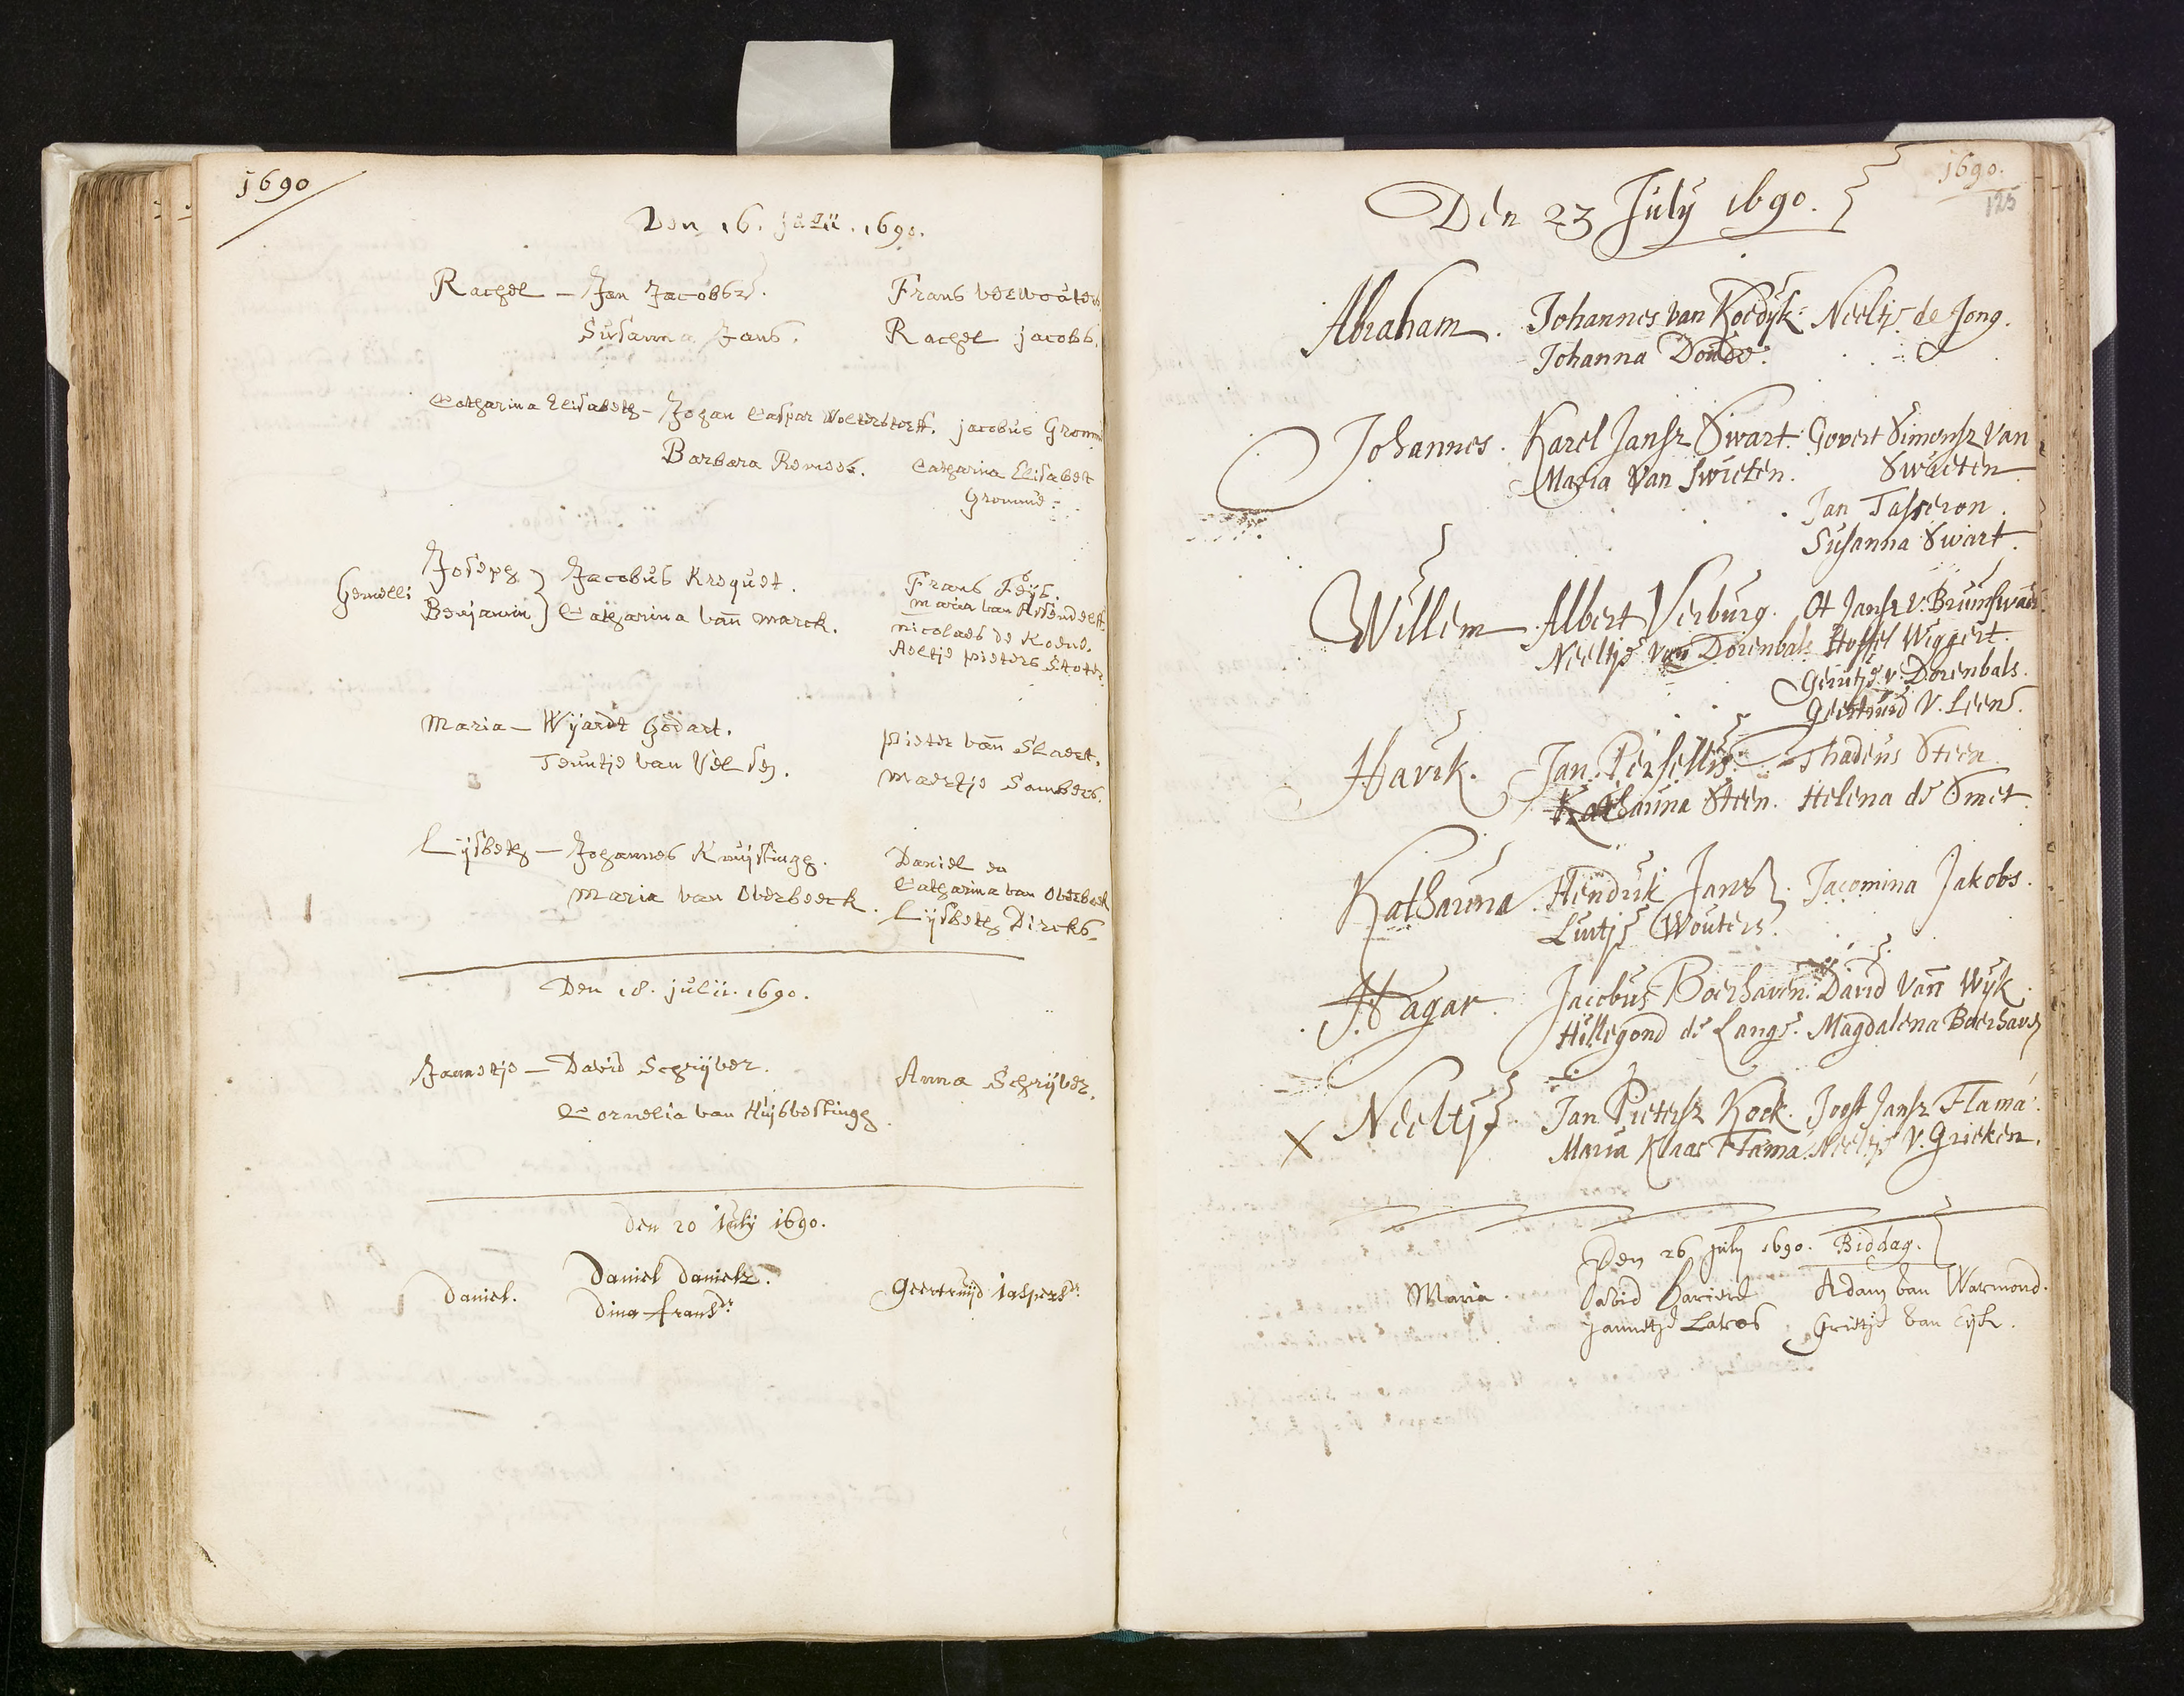 1690
Den 16. julii. 1690.
Rachel — Jan Jacobsz. Frans verwouters
Susanna Jans. Rachel jacobs.
Catharina Elisabeth — Johan Caspar Woltersterff. jacobus Gromm
Barbara Remees. Catharina Elisabet
Gromme.
Gemelli Joseph } Jacobus Kroquet. Frans Feÿs.
maria van Assendelft.
Benjamin } Catharina van marck. nicolaes de Koene.
Aeltje pieters Stoter.
Maria — Wÿardt Godart. pieter van Slaert.
Teuntje van Velsen. maertje Sambers.
Lÿsbeth — Johannes Kruÿstingh. Daniel en
Catharina van Overbeek
maria van Overbeeck. Lÿsbeth Dircks.
Den 18. julii. 1690.
Jannetje — David Schrÿver. Anna Schrÿver.
Cornelia van Hüÿsvestingh.
den 20 iulÿ 1690.
Daniel. Daniel danielsz. Geertruÿd iaspersdr
Dina fransdr
1690.
125
Den 23 Julÿ 1690.
Abraham. Johannes van Koedÿk. Neeltje de Jong.
Johanna Doude.
Johannes. Karel Jansz Swart. Govert Simonsz Van
Maria Van Swieten. Swieten.
Jan Tasseron.
Susanna Swart.
Willem. Albert Verburg. Ot Jansz v. Brunswaert.
Neeltje van Dorenbals. Stoffel Wiggert.
Geertje v. Dorenbals.
Geertruid V. Leen.
Havik. Jan Persellis. Thadeus Steen.
Katharina Steen. Helena de Smet.
Katharina. Hendrik Jans. Jacomina Jakobs.
Luitje Wouters.
Hagar. Jacobus Boerhaven. David Van Wÿk.
Hillegond de Lange. Magdalena Boerhaven
X Neeltje. Jan Pietersz Kock. Joost Jansz Flamá.
Maria Klaas Flama. Neeltje V. Grieken.
Den 26 julÿ 1690. Biddag.
Maria. David Adam van Warmond.
jannetje Grietje van Eÿk.